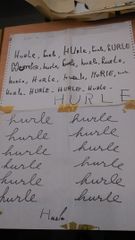 Hurle, hurle, HUrle, hurle, HURLE
hurle, hurle, hurle
hurle, HURLE, hurle, HURLE
Hurle. HURLE. HURLE. Hurle.
HURLE
hurle hurle
hurle hurle
hurle hurle
hurle hurle
hurle hurle
hurle hurle
Hurle